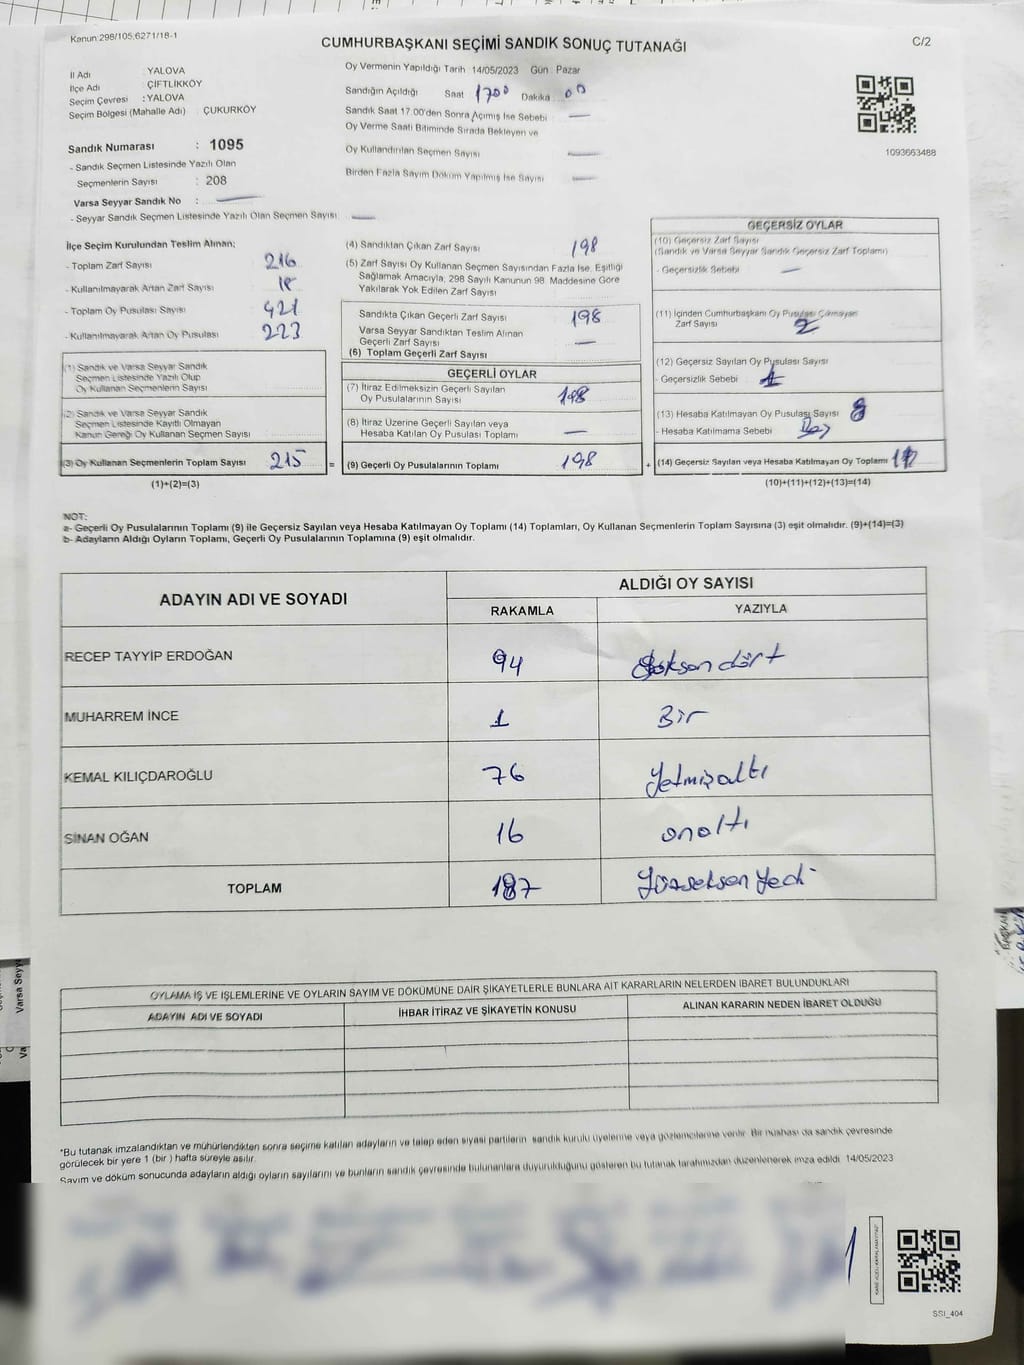 Kanun:298/105;6271/18-1
CUMHURBAŞKANI SEÇİMİ SANDIK SONUÇ TUTANAĞI
C/2
İl Adı : YALOVA
İlçe Adı : ÇİFTLİKKÖY
Seçim Çevresi : YALOVA
Seçim Bölgesi (Mahalle Adı) : ÇUKURKÖY
Sandık Numarası : 1095
- Sandık Seçmen Listesinde Yazılı Olan
Seçmenlerin Sayısı : 208
Varsa Seyyar Sandık No : —
- Seyyar Sandık Seçmen Listesinde Yazılı Olan Seçmen Sayısı —
Oy Vermenin Yapıldığı Tarih 14/05/2023 Gün Pazar
Sandığın Açıldığı Saat 1700 Dakika 00
Sandık Saat 17.00'den Sonra Açımış İse Sebebi —
Oy Verme Saati Bitiminde Sırada Bekleyen ve
Oy Kullandırılan Seçmen Sayısı —
Birden Fazla Sayım Döküm Yapılmış İse Sayısı —
1093663488
İlçe Seçim Kurulundan Teslim Alınan;
- Toplam Zarf Sayısı 216
- Kullanılmayarak Artan Zarf Sayısı
- Toplam Oy Pusulası Sayısı 421
- Kullanılmayarak Artan Oy Pusulası 223
(1) Sandık ve Varsa Seyyar Sandık
Seçmen Listesinde Yazılı Olup
Oy Kullanan Seçmenlerin Sayısı
(2) Sandık ve Varsa Seyyar Sandık
Seçmen Listesinde Kayıtlı Olmayan
Kanun Gereği Oy Kullanan Seçmen Sayısı
(3) Oy Kullanan Seçmenlerin Toplam Sayısı 215 =
(1)+(2)=(3)
(4) Sandıktan Çıkan Zarf Sayısı 198
(5) Zarf Sayısı Oy Kullanan Seçmen Sayısından Fazla İse, Eşitliği
Sağlamak Amacıyla; 298 Sayılı Kanunun 98. Maddesine Göre
Yakılarak Yok Edilen Zarf Sayısı
Sandıkta Çıkan Geçerli Zarf Sayısı 198
Varsa Seyyar Sandıktan Teslim Alınan
Geçerli Zarf Sayısı —
(6) Toplam Geçerli Zarf Sayısı
GEÇERLİ OYLAR
(7) İtiraz Edilmeksizin Geçerli Sayılan
Oy Pusulalarının Sayısı 198
(8) İtiraz Üzerine Geçerli Sayılan veya
Hesaba Katılan Oy Pusulası Toplamı —
(9) Geçerli Oy Pusulalarının Toplamı 198 +
GEÇERSİZ OYLAR
(10) Geçersiz Zarf Sayısı
(Sandık ve Varsa Seyyar Sandık Geçersiz Zarf Toplamı)
- Geçersizlik Sebebi —
(11) İçinden Cumhurbaşkanı Oy Pusulası Çıkmayan
Zarf Sayısı 2
(12) Geçersiz Sayılan Oy Pusulası Sayısı
- Geçersizlik Sebebi 1
(13) Hesaba Katılmayan Oy Pusulası Sayısı 8
- Hesaba Katılmama Sebebi Boş
(14) Geçersiz Sayılan veya Hesaba Katılmayan Oy Toplamı
(10)+(11)+(12)+(13)=(14)
NOT:
a- Geçerli Oy Pusulalarının Toplamı (9) ile Geçersiz Sayılan veya Hesaba Katılmayan Oy Toplamı (14) Toplamları, Oy Kullanan Seçmenlerin Toplam Sayısına (3) eşit olmalıdır. (9)+(14)=(3)
b- Adayların Aldığı Oyların Toplamı, Geçerli Oy Pusulalarının Toplamına (9) eşit olmalıdır.
ADAYIN ADI VE SOYADI
ALDIĞI OY SAYISI
RAKAMLA YAZIYLA
RECEP TAYYİP ERDOĞAN 94 doksan dört
MUHARREM İNCE 1 Bir
KEMAL KILIÇDAROĞLU 76 Yetmişaltı
SİNAN OĞAN 16 onaltı
TOPLAM 187 Yüzseksen Yedi
OYLAMA İŞ VE İŞLEMLERİNE VE OYLARIN SAYIM VE DÖKÜMÜNE DAİR ŞİKAYETLERLE BUNLARA AİT KARARLARIN NELERDEN İBARET BULUNDUKLARI
ADAYIN ADI VE SOYADI İHBAR İTİRAZ VE ŞİKAYETİN KONUSU ALINAN KARARIN NEDEN İBARET OLDUĞU
*Bu tutanak imzalandıktan ve mühürlendikten sonra seçime katılan adayların ve talep eden siyasi partilerin sandık kurulu üyelerine veya gözlemcilerine verilir. Bir nüshası da sandık çevresinde
görülecek bir yere 1 (bir ) hafta süreyle asılır.
Sayım ve döküm sonucunda adayların aldığı oyların sayılarını ve bunların sandık çevresinde bulunanlara duyurulduğunu gösteren bu tutanak tarafımızdan düzenlenerek imza edildi 14/05/2023
SSI_404